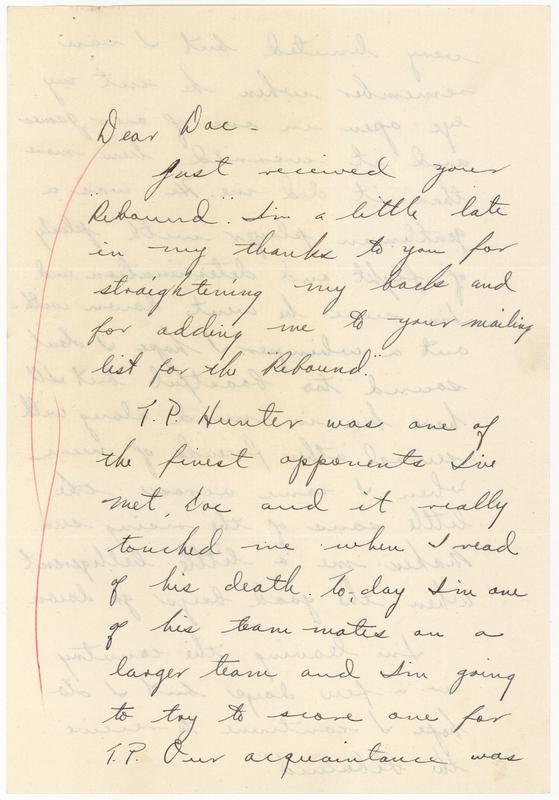 Dear Doc -
Just received your
"Rebound". I'm a little late
in my thanks to you for
straightening my back and
for adding me to your mailing
list for the "Rebound."
T.P. Hunter was one of
the finest opponents I've
met, Doc and it really
touched me when I read
of his death. To-day I'm one
of his team mates on a
larger team and I'm going
to try to score one for
T.P. Our acquaintance was